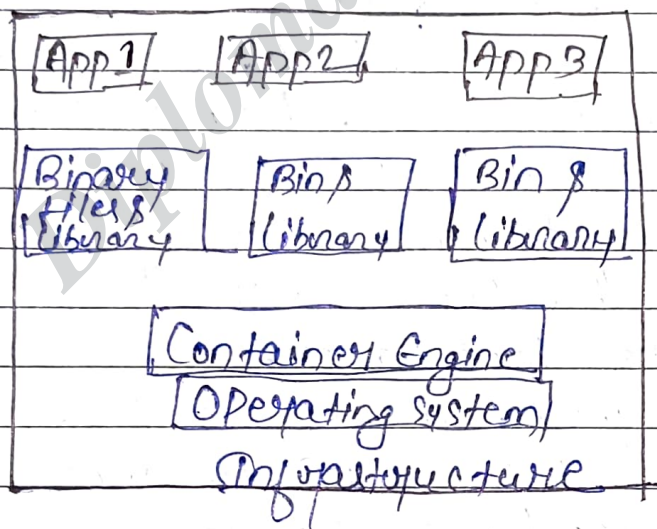 App 1 App 2 App 3
Binary Bin & Bin &
files &
Library Library Library
Container Engine
Operating System
Infrastructure
Diploma